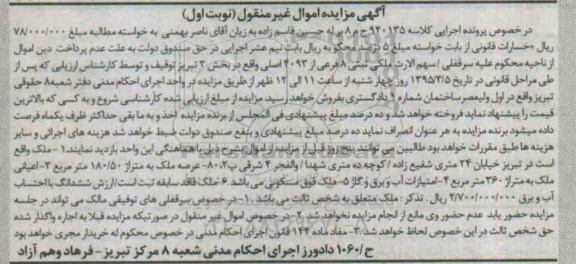 آگهی مزایده اموال غیر منقول (نوبت اول)
در خصوص پرونده اجرایی کلاسه ۱۴۰۱۳۵ ج م ۸ له حسین قاسم زاده به زیان آقای ناصر بهمنی به خواسته مطالبه مبلغ ۷۸/۰۰۰/۰۰۰
ریال +خسارات قانونی از بابت خواسته مبلغ ۵ درصد محکوم به ریال بابت نیم عشر اجرایی در حق صندوق دولت به علت عدم پرداخت دین اموال
از ناحیه محکوم علیه سرقفلی / سهم الارث ملکی ثبتی ۸ فرعی از ۴۰۹۳ اصلی واقع در بخش ۳ تبریز توقیف و توسط کارشناس ارزیابی که پس از
طی مراحل قانونی در تاریخ ۱۳۹۵/۳/۵ روز چهار شنبه از ساعت ۱۱ الی ۱۲ ظهر از طریق مزایده در واحد اجرای احکام مدنی دفتر شعبه ۸ حقوقی
تبریز واقع در اول ولیعصر ساختمان شماره دادگستری بفروش خواهد رسید مزایده از مبلغ ارزیابی شده کارشناسی شروع و به کسی که بالاترین
قیمت را پیشنهاد نماید فروخته خواهد شد و ده درصد مبلغ پیشنهادی فی المجلس از برنده مزایده اخذ و به ما بقی حداکثر ظرف یکماه فرصت
داده میشود برنده مزایده به هر عنوان انصراف نماید ده درصد مبلغ پیشنهادی و بنفع صندوق دولت ضبط خواهد شد هزینه های اجرائی و سایر
هزینه ها طبق مقررات خواهد بود طالبین می توانند پنج روز قبل از مزایده از اموال بشرح ذیل با هماهنگی این واحد بازدید نمایند: ۱- ملک واقع
است در تبریز خیابان ۲۴ متری شفیع زاده / کوچه ده متری شهدا / والفجر ۴ شرقی پ۸۰۲- عرصه ملک به متراژ ۱۸۰/۵۰ متر مربع ۳- اعیانی
ملک به متراژ ۳۶۰ متر مربع ۴- امتیازات آب و برق و گاز ۵- ملک فوق مسکونی می باشد ۶- ملک فاقد سابقه ثبت است/ارزش ششدانگ با احتساب
آب و برق ۲/۷۰۰/۰۰۰/۰۰۰ ریال. تذکر: ملک متعلق به شخص ثالث می باشد. ۱- در خصوص سرقفلی های توقیفی مالک می تواند در جلسه
مزایده حضور یابد عدم حضور وی مانع از انجام مزایده نخواهد شد ۲- در خصوص اموال غیر منقول در صورتیکه مزایده قبلا به اجاره واگذار شده
حق شخص ثالث در این خصوص لحاظ خواهد شد ۳- مفاد ماده ۱۴۴ قانون اجرای احکام مدنی در خصوص محکوم له خریدار مجری خواهد بود
ح/۱۰۶۰ دادورز اجرای احکام مدنی شعبه ۸ مرکز تبریز - فرهاد وهم آزاد